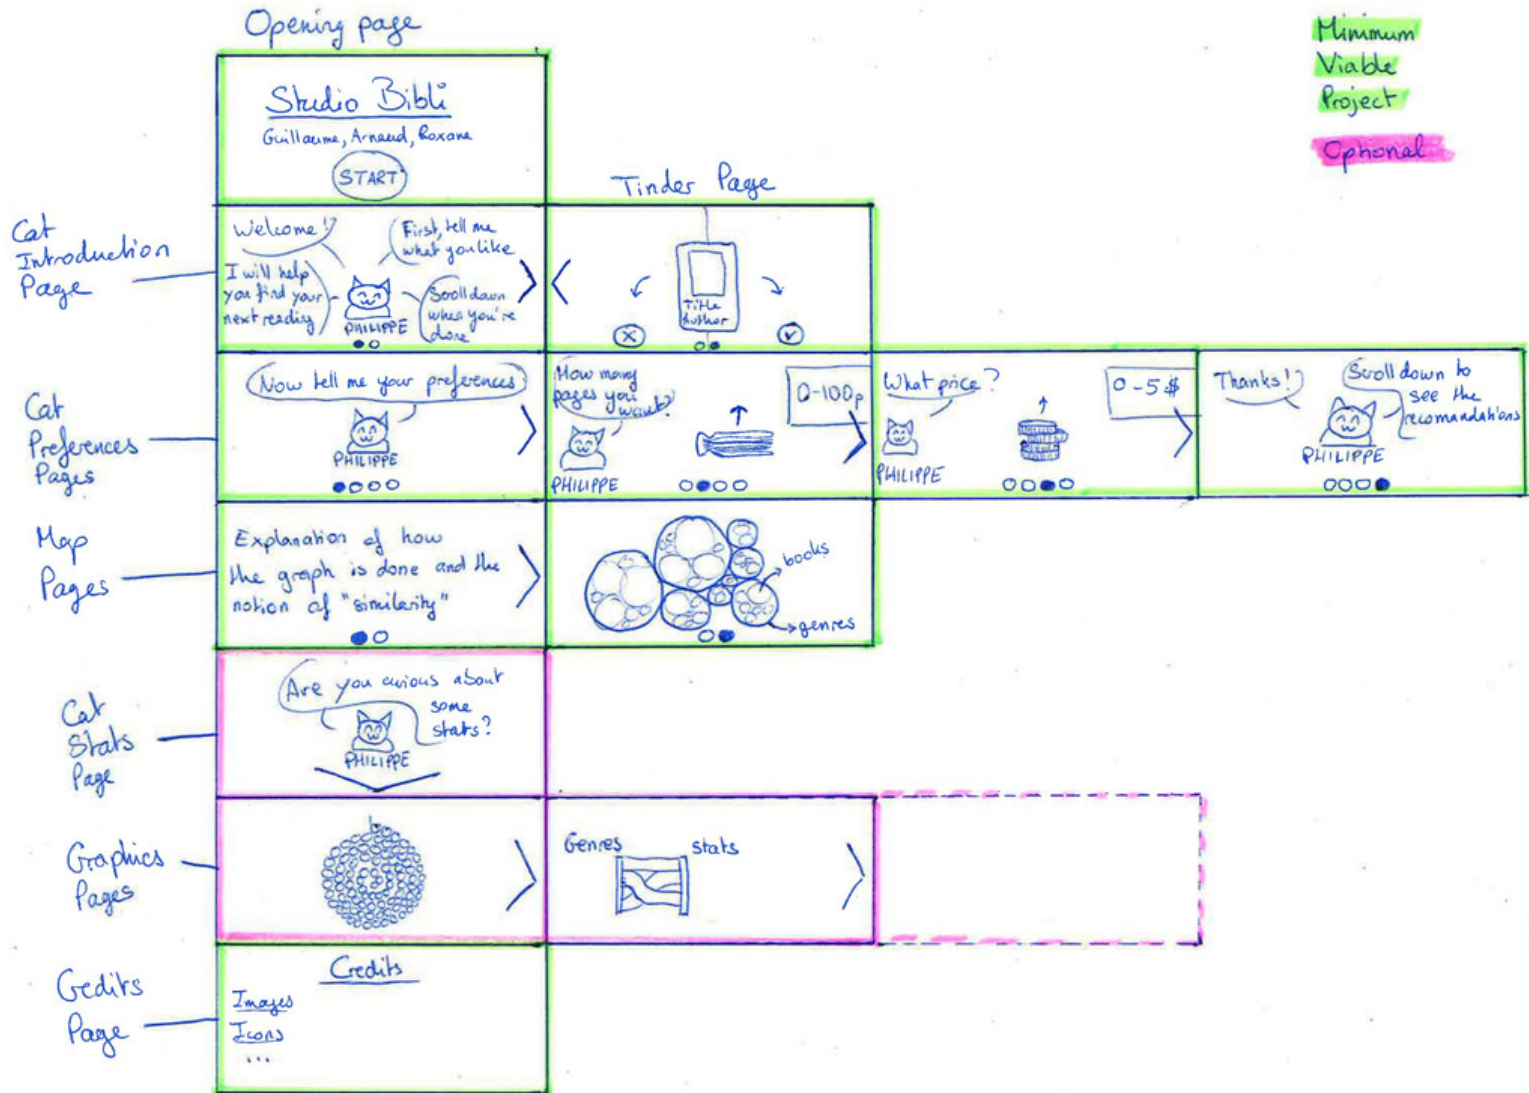 Opening page
Minimum
Viable
Project
Optional
Studio Bibli
Guillaume, Arnaud, Roxane
START
Tinder Page
Cat
Introduction
Page
Welcome!
First, tell me
what you like
I will help
you find your
next reading
Scroll down
when you're
done
PHILIPPE
Title
Author
Cat
Preferences
Pages
Now tell me your preferences
PHILIPPE
How many
pages you
want?
0-100p
PHILIPPE
What price?
0-5$
PHILIPPE
Thanks!
Scroll down to
see the
recomandations
PHILIPPE
Map
Pages
Explanation of how
the graph is done and the
notion of "similarity"
books
genres
Cat
Stats
Page
Are you curious about
some
stats?
PHILIPPE
Graphics
Pages
Genres
stats
Credits
Page
Credits
Images
Icons
...